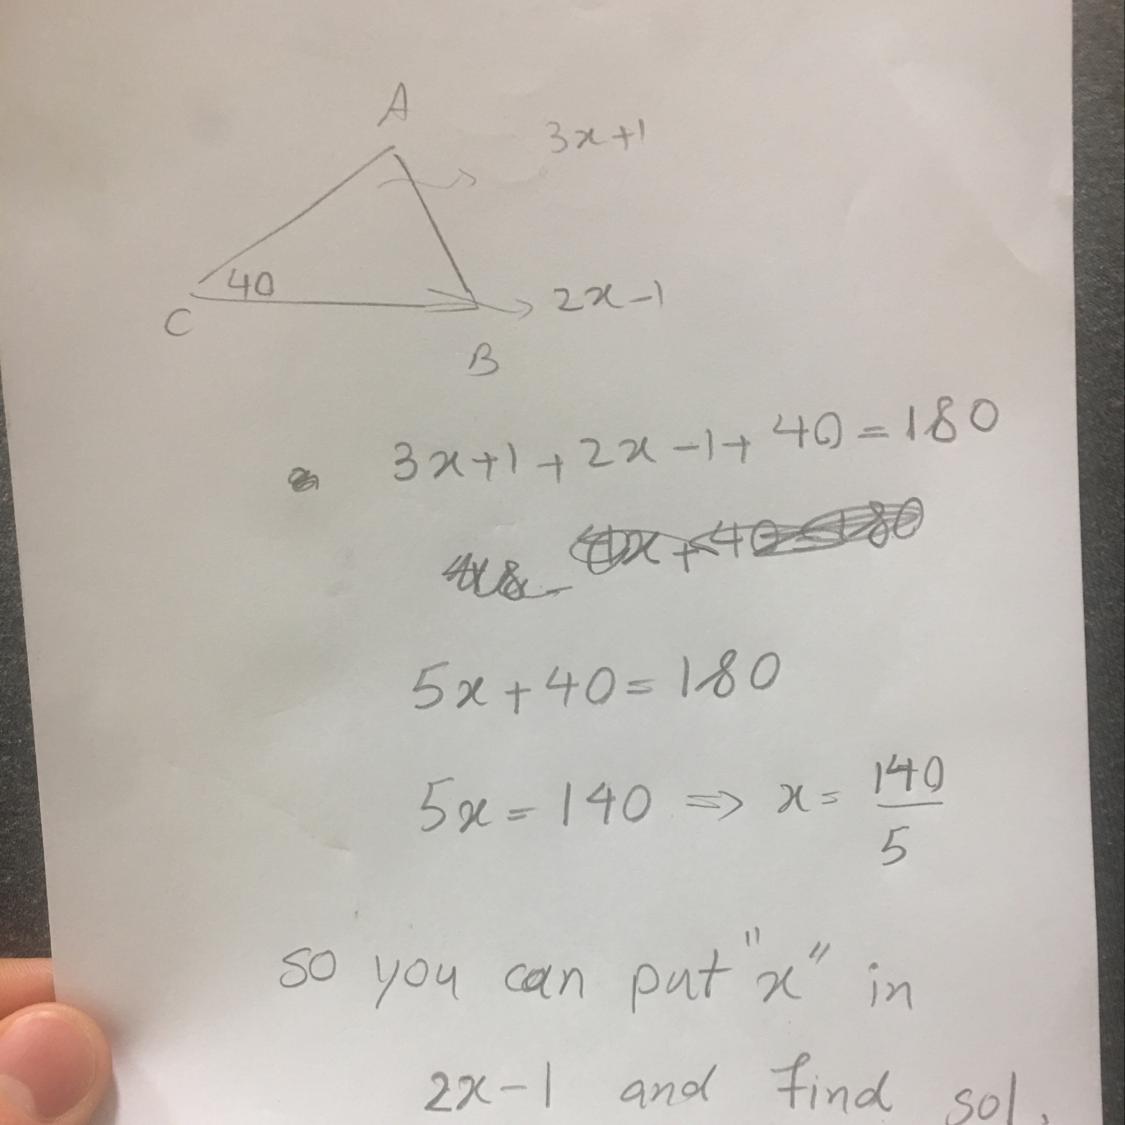 A
3x+1
40
2x-1
C
B
3x+1+2x-1+40=180
5x+40=180
5x=140 => x=140/5
so you can put "x" in
2x-1 and find sol.